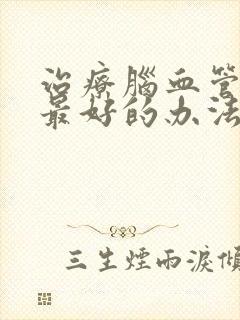 治療腦血管
最好的办法
三生煙雨淚傾